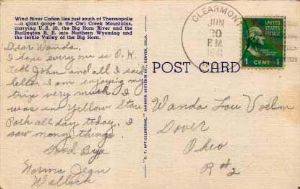 Wind River Canon lies just south of Thermopolis
a giant gorge in the Owl Creek Mountains,
carrying U.S. 20, the Big Horn River and the
Burlington R. R. into Northern Wyoming and
the fertile Valley of the Big Horn.
Dear Wanda,
I hope every one is O.K.
told John and all I said
hello. I am enjoying my
trip very much. I
was in Yellow Stone
Park all day today. I
saw many things.
Good Bye
Norma Jean
Wallick
POST CARD
CLEARMONT
JUN
30
P.M.
1 CENT 1
Wanda Lou
Dover
Ohio
R#2